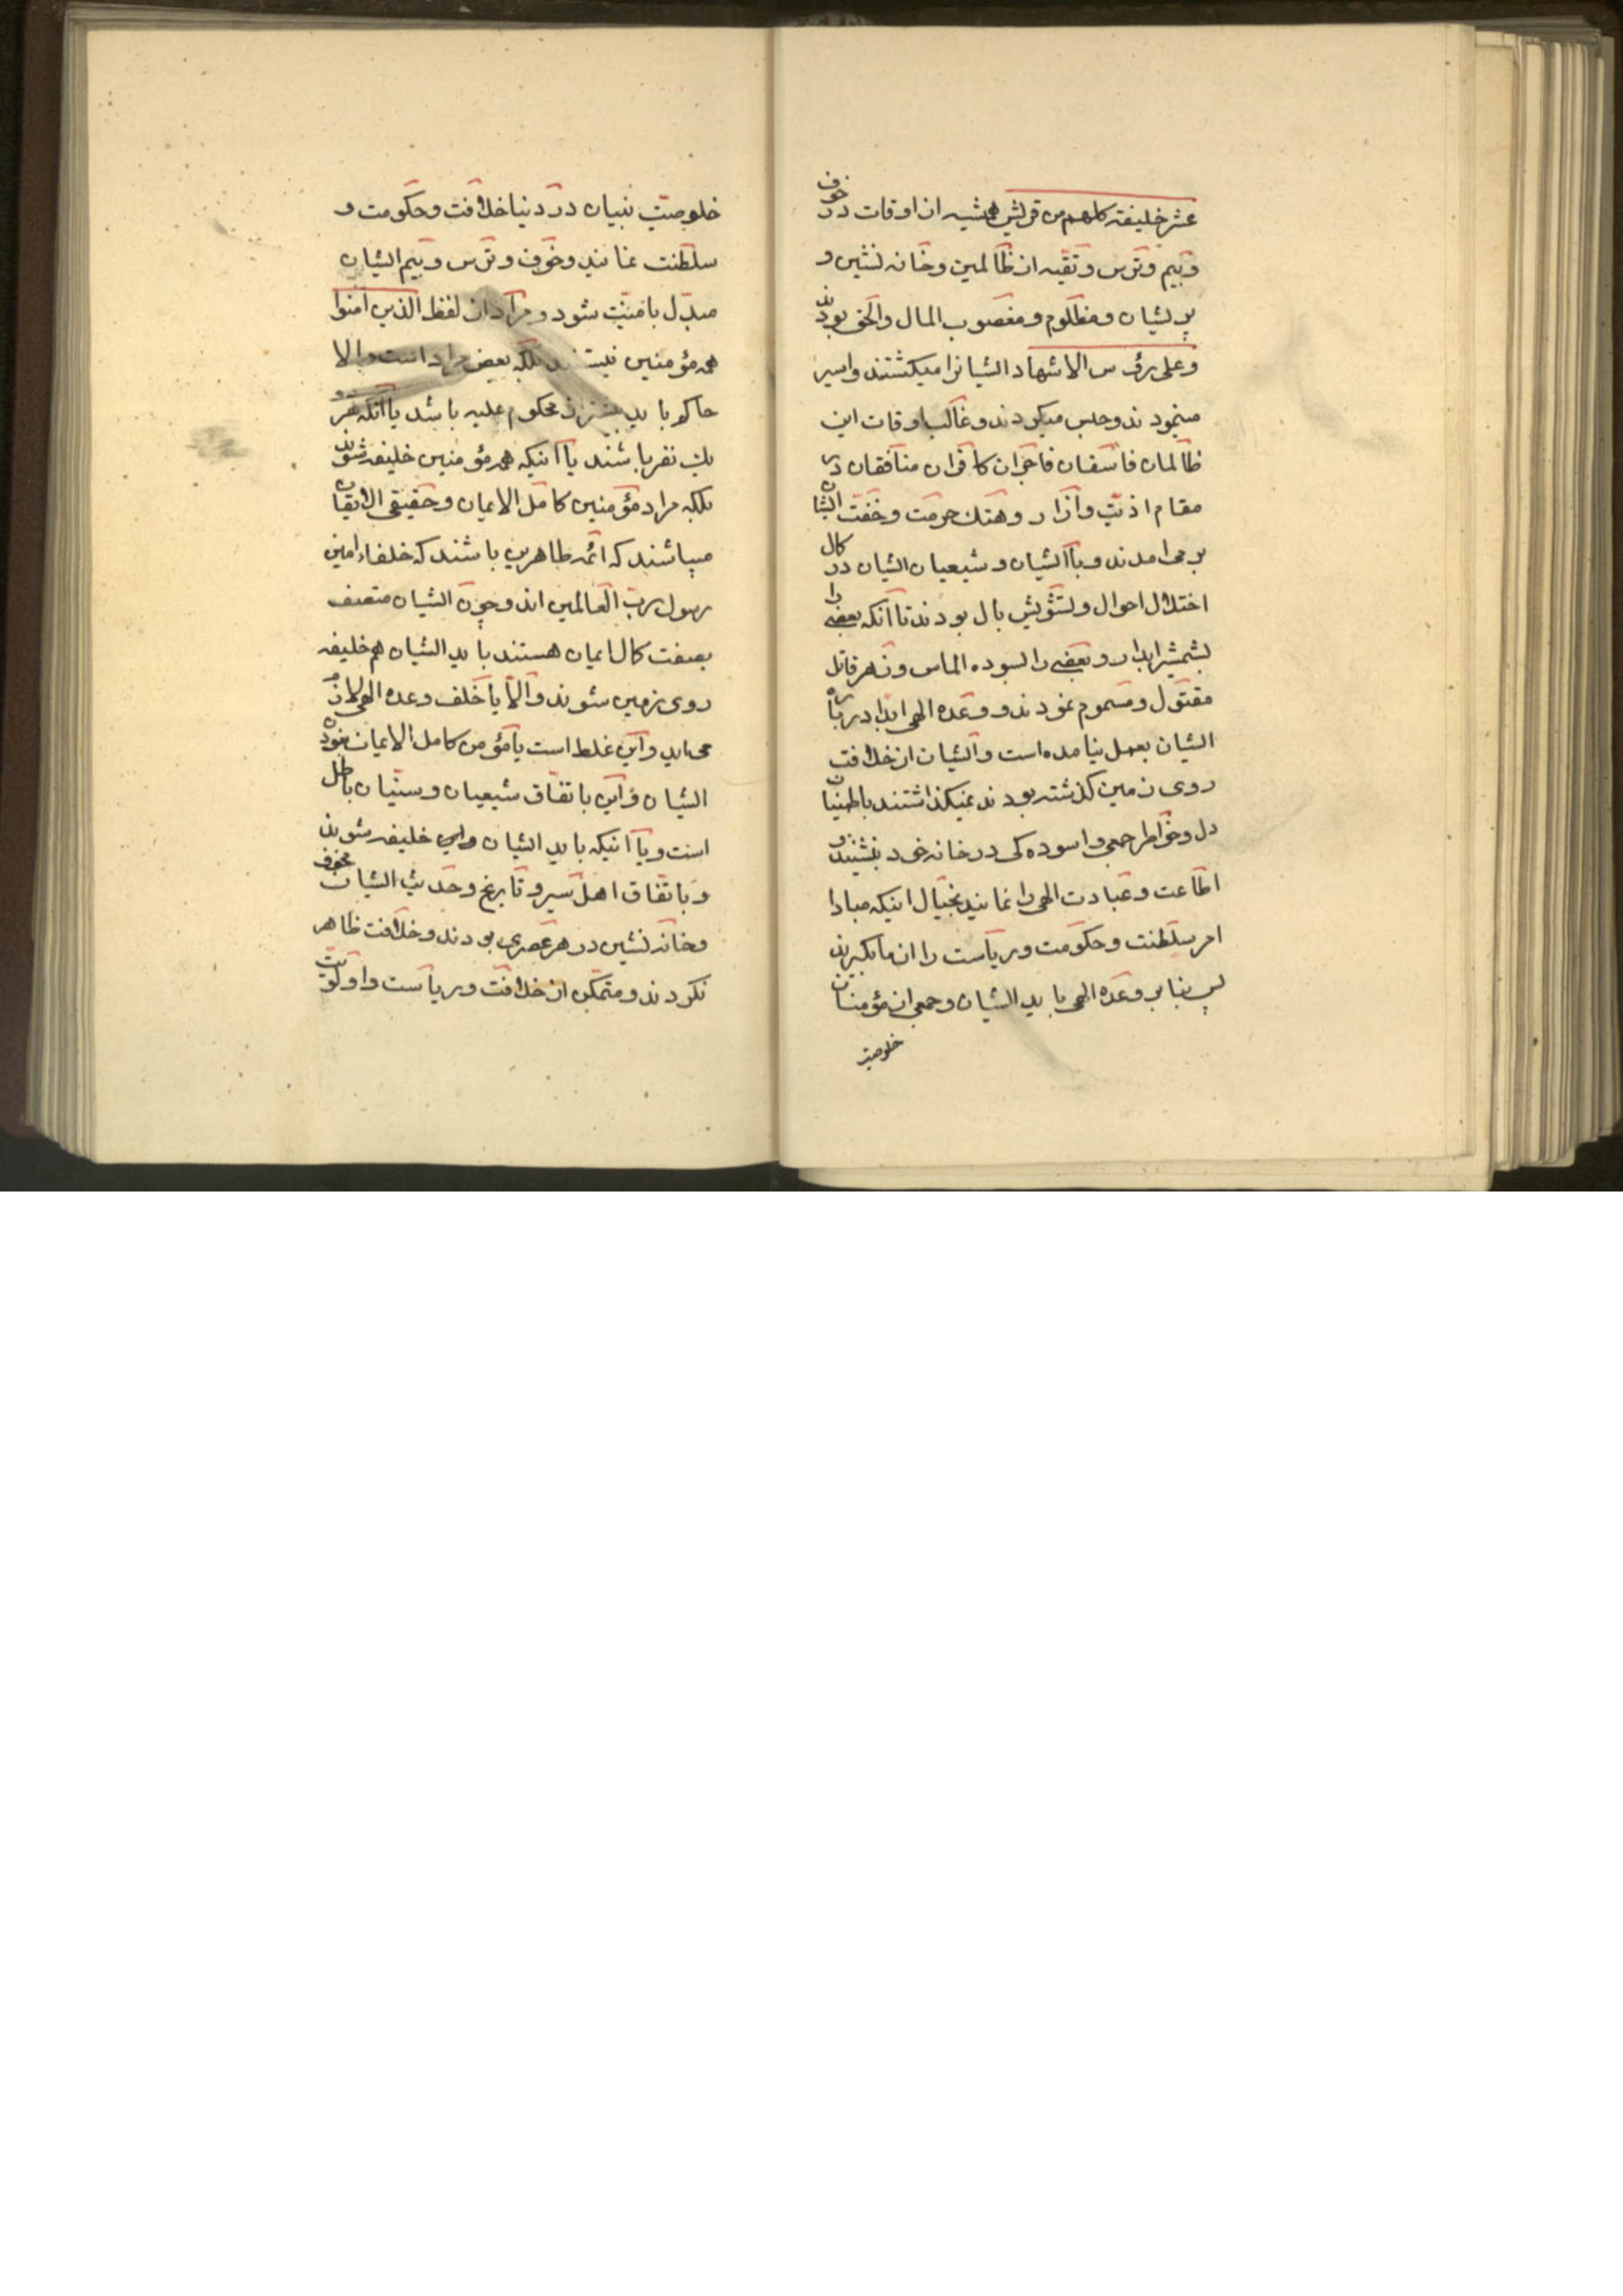 عشر خلیفة کلهم من قریش همیشه از اوقات در خوف
و بیم و ترس و تقیه از ظالمین و خانه نشین و
پریشان و مظلوم و مغصوب المال والحق بودند
وعلی رؤس الاشهاد ایشانرا میکشتند و اسیر
مینمودند و حبس میکردند و غالب اوقات این
ظالمان فاسقان فاجران کافران منافقان در
مقام اذیت و آزار و هتك حرمت و خفت ایشان
بر می امدند و با ایشان و شیعیان ایشان در کمال
اختلال احوال و تشویش بال بودند تا آنکه بعضی را
بشمشیر ابدار و بعضی را بسوده الماس و زهر قاتل
مقتول و مسموم نمودند و وعده الهی ابدا درباره
ایشان بعمل نیامده است و ایشان از خلافت
روی زمین گذشته بودند نمیگذاشتند باطمینان
دل و خواطر جمعی و اسوده کی در خانه خود بنشینند و
اطاعت و عبادت الهی را نمایند بخیال اینکه مبادا
امر سلطنت و حکومت و ریاست را از ما بگیرند
پس بنا بر وعده الهی باید ایشان و جمعی از مؤمنان
خلوصیت
خلوصیت بنیان در دنیا خلافت و حکومت و
سلطنت نمایند و خوف و ترس و بیم ایشان
مبدل بامنیت شود و مراد از لفظ الذین امنوا
همه مؤمنین نیستند بلکه بعض مراد است والا
حاکم باید محکوم علیه باشد یا آنکه
یك نفر باشند یا اینکه همه مؤمنین خلیفه شوند
بلکه مراد مؤمنین کامل الایمان و حقیقی الایقان
میباشند که ائمه طاهرین باشند که خلفاء امین
رسول رب العالمین اند و چون ایشان متصف
بصفت کمال ایمان هستند باید ایشان هم خلیفه
روی زمین شوند والا یا خلف وعده الهی لازم
می اید و این غلط است یا مؤمن کامل الایمان نبودن
ایشان و این باتفاق شیعیان و سنیان باطل
است و یا اینکه باید ایشان خلیفه شوند
و باتفاق اهل سیر و تاریخ و حدیث ایشان مخوف
و خانه نشین در هر عصری بودند و خلافت ظاهر
نکردند و متمکن از خلافت و ریاست و اولویت